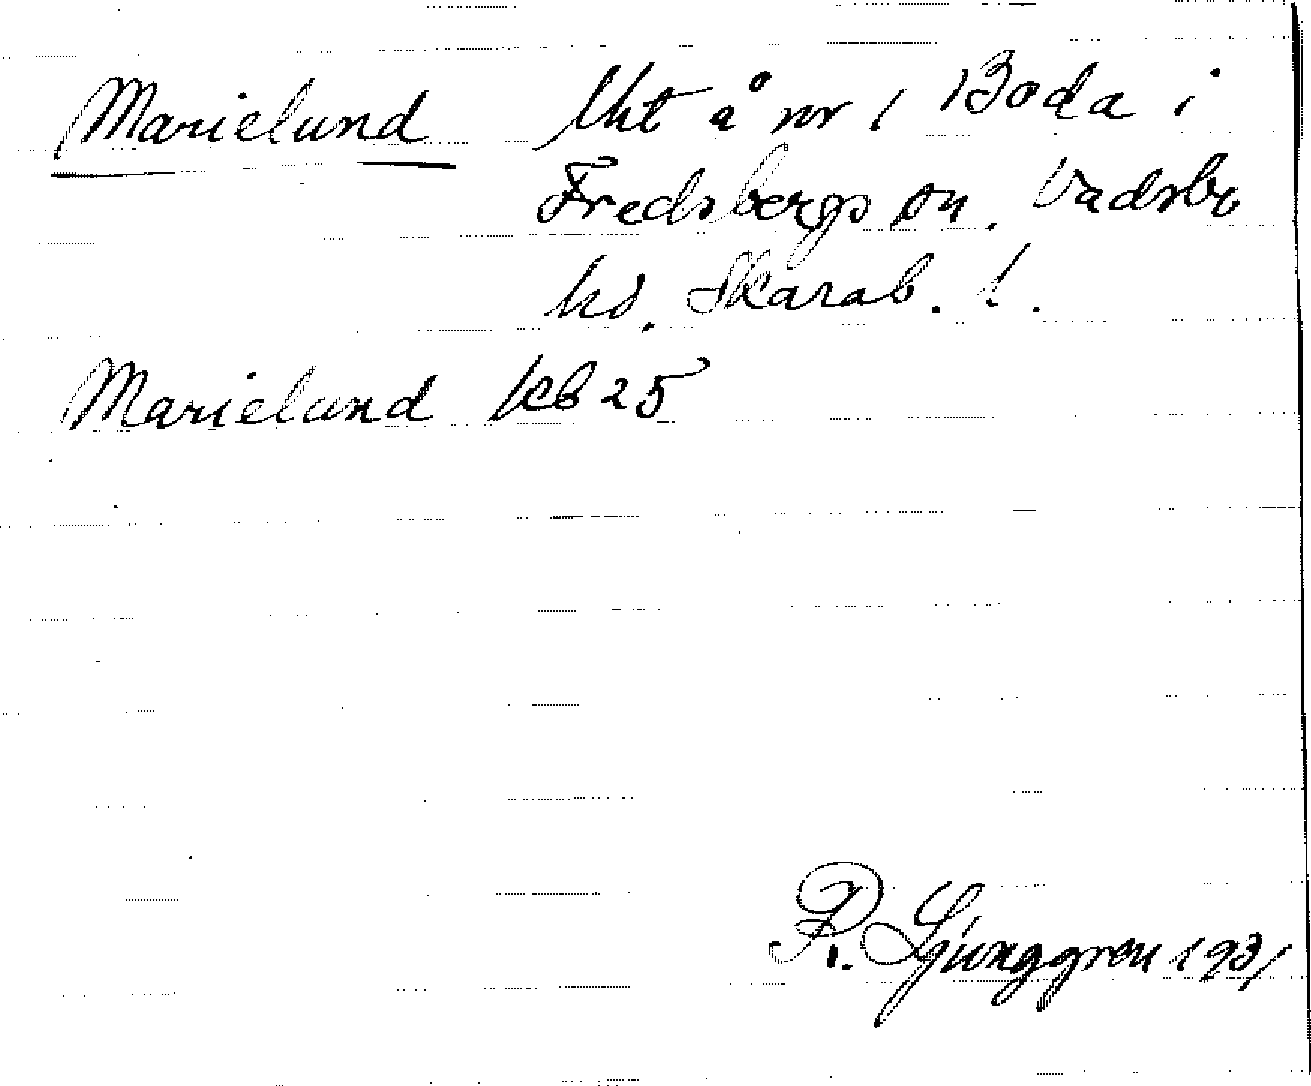 Marielund Uht å nr 1 Boda i
Fredsbergs sn. Vadsbo
hd. Skarab. l.
Marielund KB 25
R. Ljunggren 1931